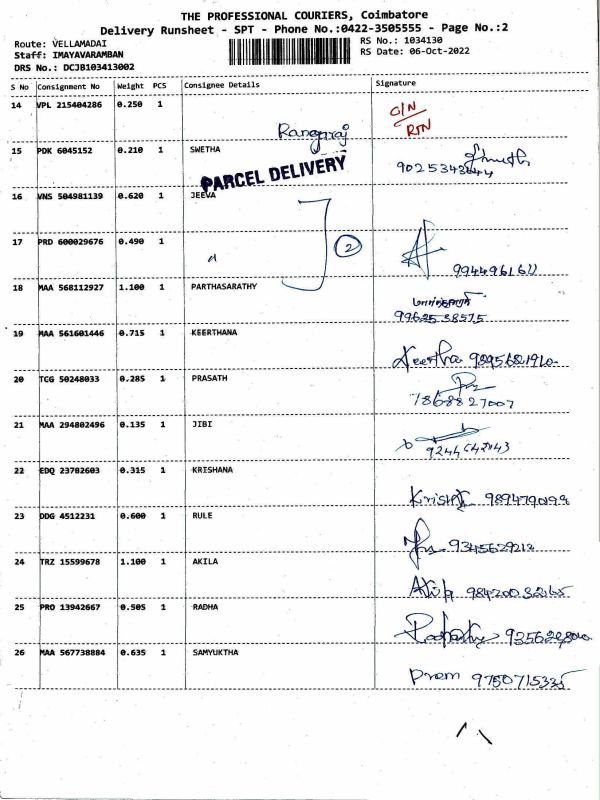 THE PROFESSIONAL COURIERS, Coimbatore
Delivery Runsheet - SPT - Phone No.:0422-3505555 - Page No.:2
Route: VELLAMADAI
RS No.: 1034130
Staff: IMAYAVARAMBAN
RS Date: 06-Oct-2022
DRS No.: DCJB103413002
S No Consignment No Weight PCS Consignee Details Signature
14 VPL 215404286 0.250 1
Rangaraj
RTN
15 PDK 6045152 0.210 1 SWETHA
PARCEL DELIVERY
16 VNS 504981139 0.620 1 JEEVA
17 PRD 600029676 0.490 1 2
18 MAA 568112927 1.100 1 PARTHASARATHY
9962538575
19 MAA 561601446 0.715 1 KEERTHANA
Keertha
20 TCG 50248033 0.285 1 PRASATH
7868827007
21 MAA 294802496 0.135 1 JIBI
22 EDQ 23782603 0.315 1 KRISHANA
23 DDG 4512231 0.600 1 RULE
9345629212
24 TRZ 15599678 1.100 1 AKILA
25 PRO 13942667 0.505 1 RADHA
26 MAA 567738884 0.635 1 SAMYUKTHA
Prem 9750715335